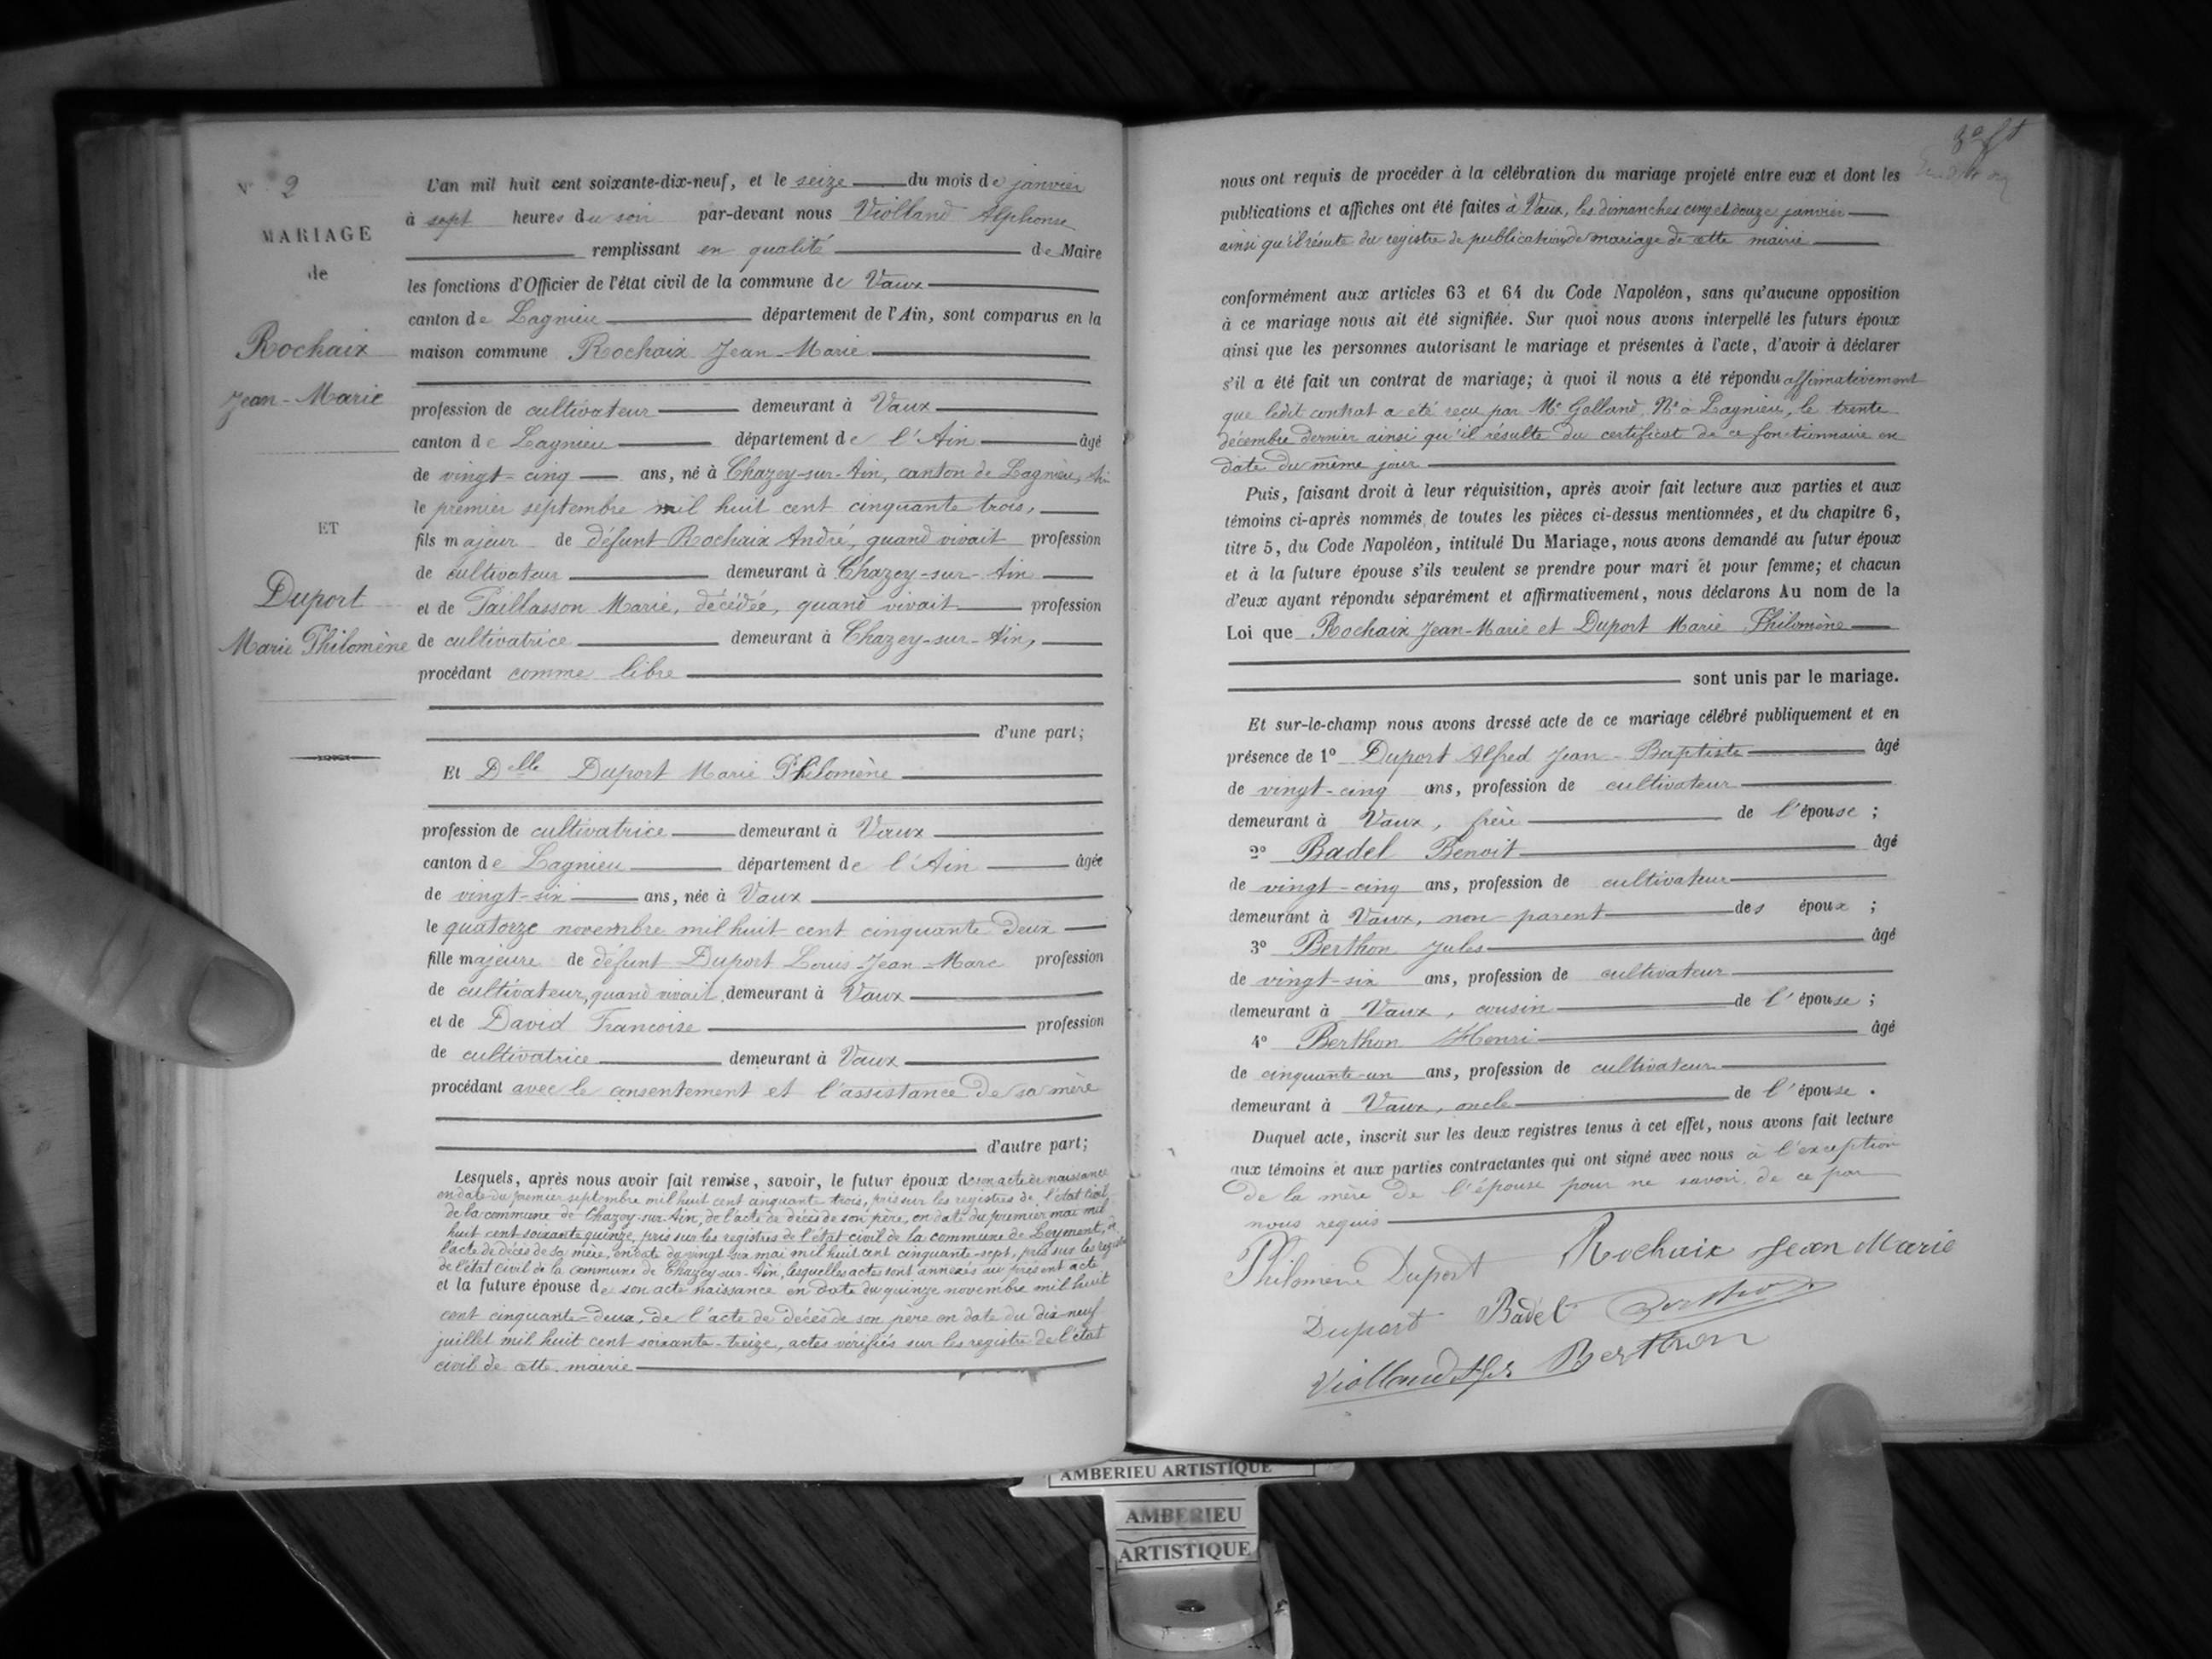 N° 2
MARIAGE
de
Rochaix
Jean-Marie
ET
Duport
Marie Philomène
L'an mil huit cent soixante-dix-neuf, et le seize du mois de janvier
à sept heures du soir par-devant nous Violland Alphonse
remplissant en qualité de Maire
les fonctions d'Officier de l'état civil de la commune de Vaux
canton de Lagnieu département de l'Ain, sont comparus en la
maison commune Rochaix Jean-Marie
profession de cultivateur demeurant à Vaux
canton de Lagnieu département de l'Ain âgé
de vingt-cinq ans, né à Chazey-sur-Ain, canton de Lagnieu, Ain
le premier septembre mil huit cent cinquante trois,
fils majeur de défunt Rochaix André, quand vivait profession
de cultivateur demeurant à Chazey-sur-Ain
et de Paillasson Marie, décédée, quand vivait profession
de cultivatrice demeurant à Chazey-sur-Ain,
procédant comme libre
d'une part;
Et Delle Duport Marie Philomène
profession de cultivatrice demeurant à Vaux
canton de Lagnieu département de l'Ain âgée
de vingt-six ans, née à Vaux
le quatorze novembre mil huit cent cinquante deux
fille majeure de défunt Duport Louis-Jean-Marc profession
de cultivateur, quand vivait, demeurant à Vaux
et de David Francoise profession
de cultivatrice demeurant à Vaux
procédant avec le consentement et l'assistance de sa mère
d'autre part;
Lesquels, après nous avoir fait remise, savoir, le futur époux de son acte de naissance
en date du premier septembre mil huit cent cinquante trois, pris sur les registres de l'état civil
de la commune de Chazey-sur-Ain, de l'acte de décès de son père, en date du premier mai mil
huit cent soixante quinze, pris sur les registres de l'état civil de la commune de Leyment, de
l'acte de décès de sa mère, en date du vingt six mai mil huit cent cinquante-sept, pris sur les registres
de l'état civil de la commune de Chazey-sur-Ain, lesquelles actes sont annexés au présent acte
et la future épouse de son acte naissance en date du quinze novembre mil huit
cent cinquante-deux, de l'acte de décès de son père en date du dix neuf
juillet mil huit cent soixante-treize, actes vérifiés sur les registre de l'état
civil de cette mairie
nous ont requis de procéder à la célébration du mariage projeté entre eux et dont les
publications et affiches ont été faites à Vaux, les dimanches cinq et douze janvier
ainsi qu'il résulte du registre de publications de mariage de cette mairie
conformément aux articles 63 et 64 du Code Napoléon, sans qu'aucune opposition
à ce mariage nous ait été signifiée. Sur quoi nous avons interpellé les futurs époux
ainsi que les personnes autorisant le mariage et présentes à l'acte, d'avoir à déclarer
s'il a été fait un contrat de mariage; à quoi il nous a été répondu affirmativement
que ledit contrat a été reçu par Me Golland, Nre à Lagnieu, le trente
décembre dernier ainsi qu'il résulte du certificat de ce fonctionnaire en
date du même jour
Puis, faisant droit à leur réquisition, après avoir fait lecture aux parties et aux
témoins ci-après nommés de toutes les pièces ci-dessus mentionnées, et du chapitre 6,
titre 5, du Code Napoléon, intitulé Du Mariage, nous avons demandé au futur époux
et à la future épouse s'ils veulent se prendre pour mari et pour femme; et chacun
d'eux ayant répondu séparément et affirmativement, nous déclarons Au nom de la
Loi que Rochaix Jean-Marie et Duport Marie Philomène
sont unis par le mariage.
Et sur-le-champ nous avons dressé acte de ce mariage célébré publiquement et en
présence de 1° Duport Alfred Jean-Baptiste âgé
de vingt-cinq ans, profession de cultivateur
demeurant à Vaux, frère de l'épouse ;
2° Badel Benoit âgé
de vingt-cinq ans, profession de cultivateur
demeurant à Vaux, non parent des époux ;
3° Berthon Jules âgé
de vingt-six ans, profession de cultivateur
demeurant à Vaux, cousin de l'épouse ;
4° Berthon Henri âgé
de cinquante-un ans, profession de cultivateur
demeurant à Vaux, oncle de l'épouse .
Duquel acte, inscrit sur les deux registres tenus à cet effet, nous avons fait lecture
aux témoins et aux parties contractantes qui ont signé avec nous à l'exception
de la mère de l'épouse pour ne savoir, de ce par
nous requis
Philomène Duport Rochaix Jean Marie
Duport Badel Berthon
Violland Berthon
AMBERIEU ARTISTIQUE
AMBERIEU
ARTISTIQUE